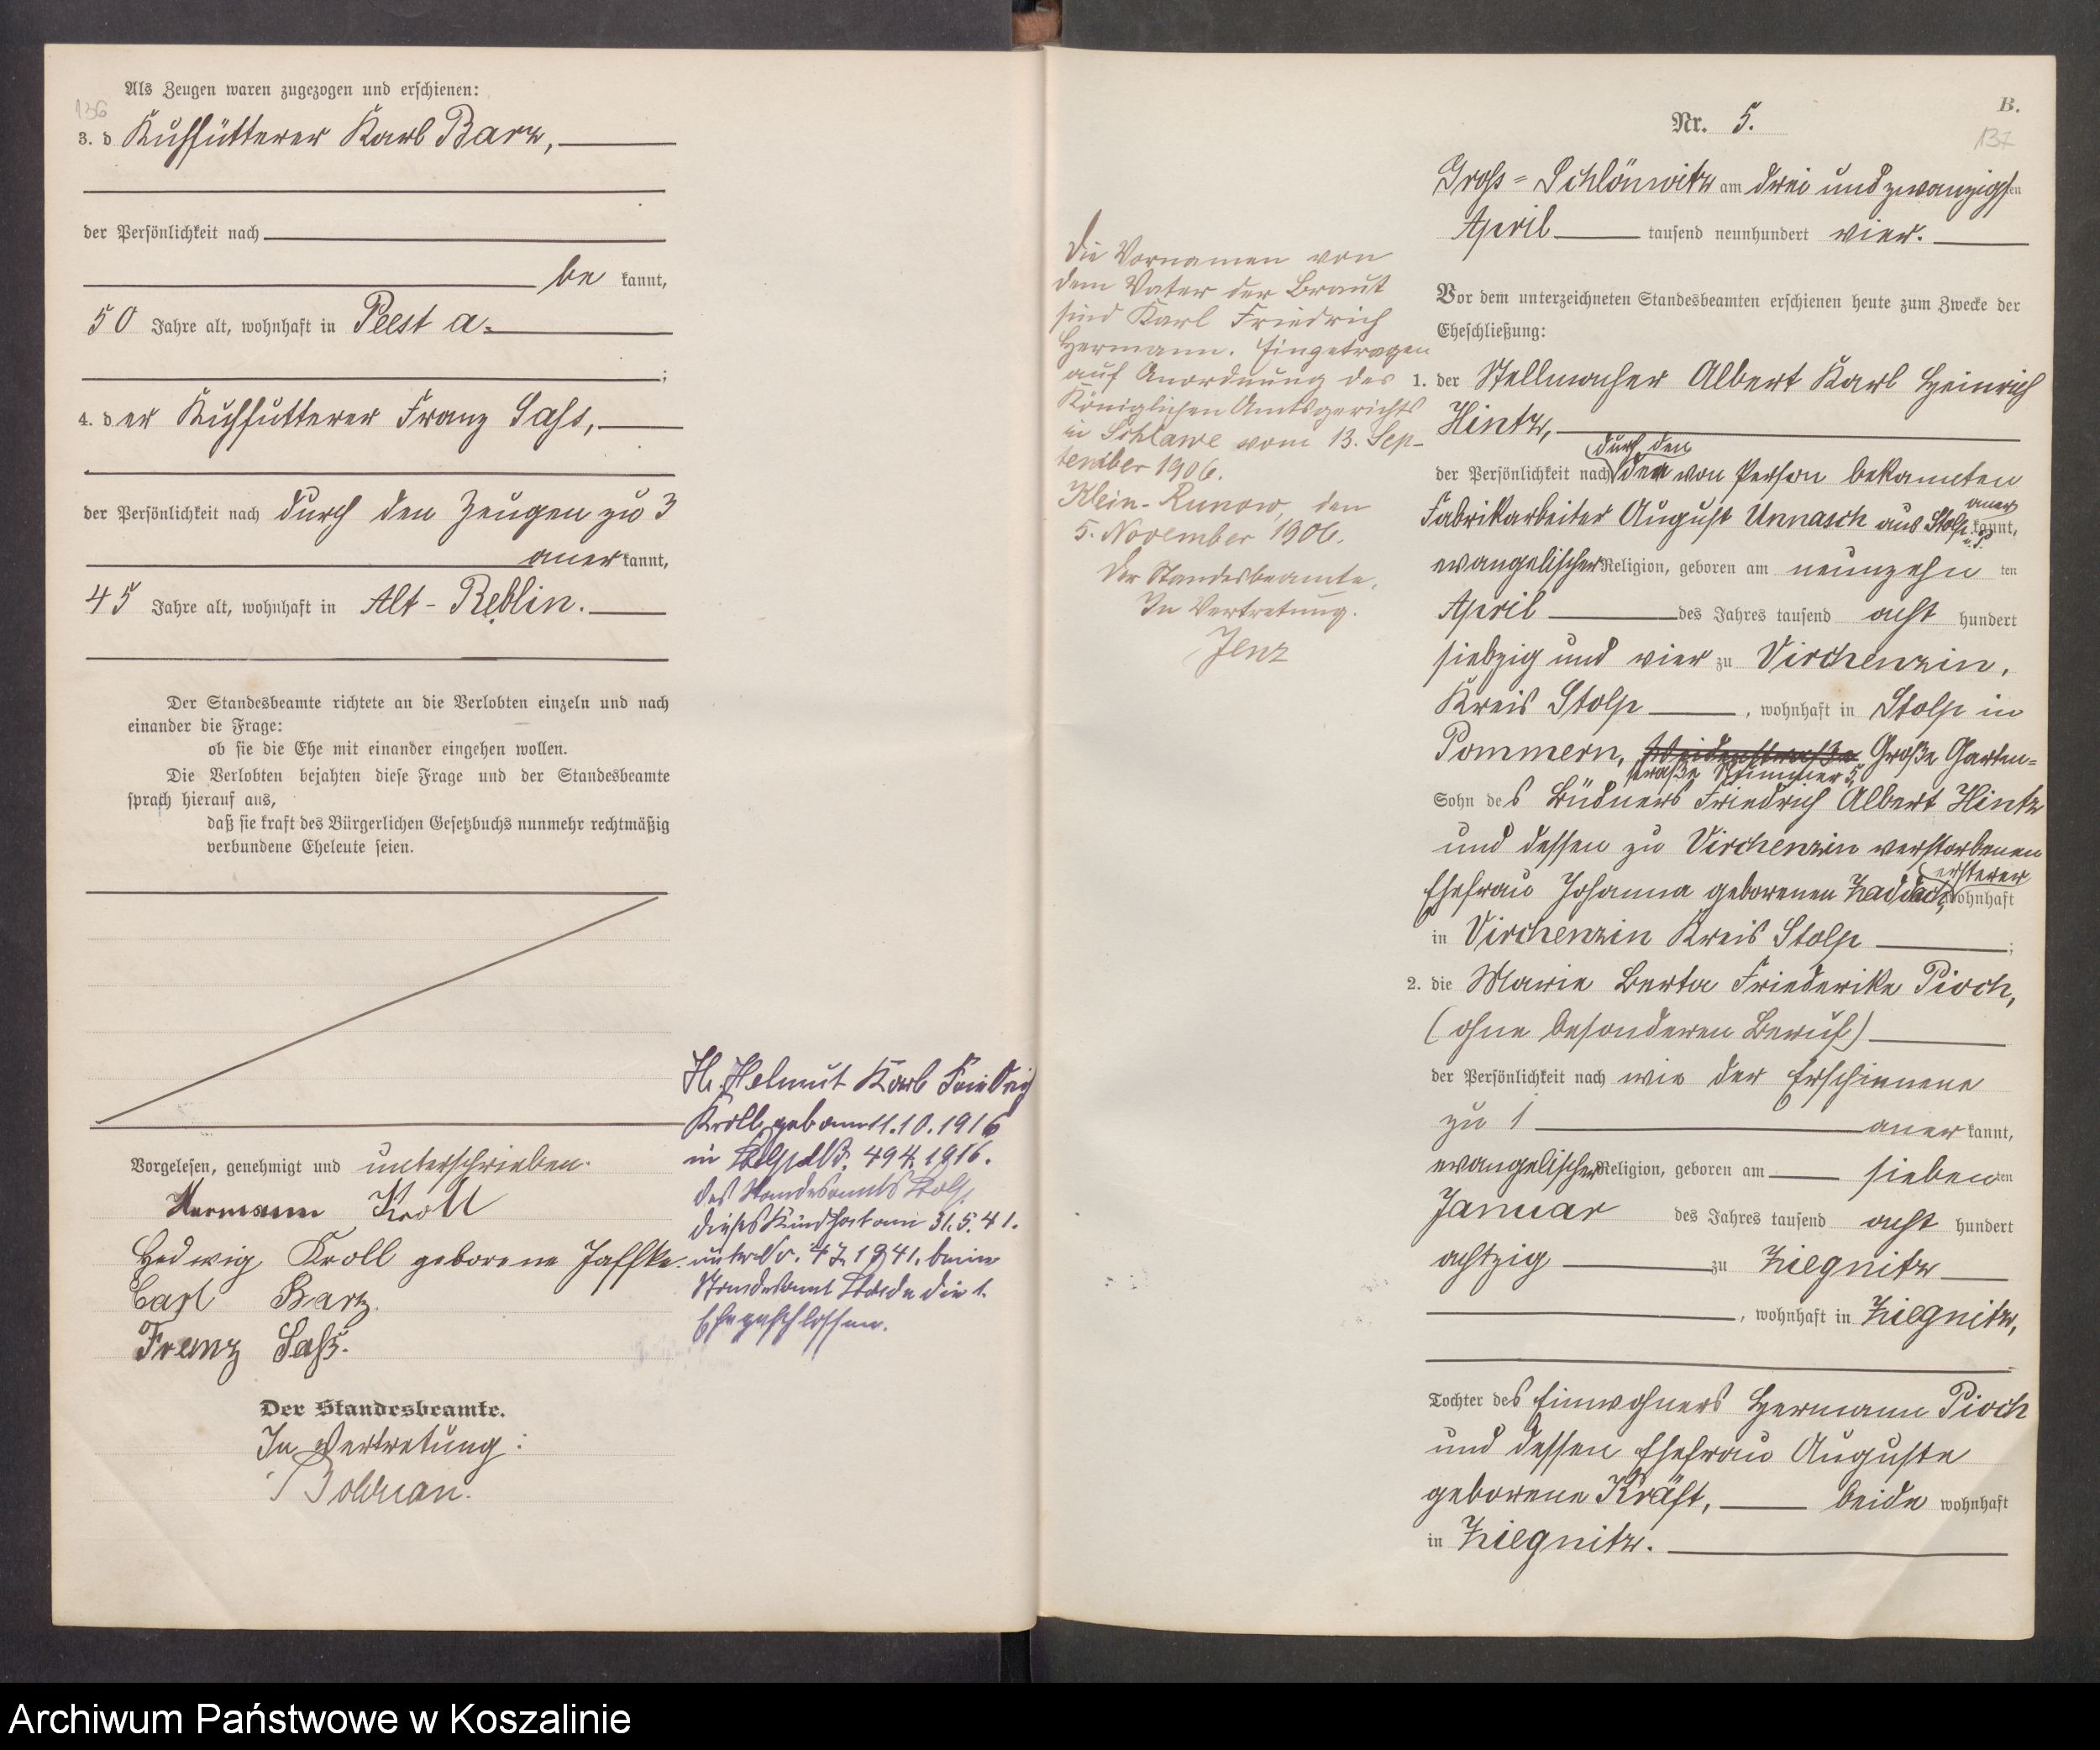 136
Als Zeugen waren zugezogen und erschienen:
3. d Kuhfütterer Karl Barz,
der Persönlichkeit nach
be kannt,
50 Jahre alt, wohnhaft in Peest a.
;
4. d er Kuhfutterer Franz Sass,
der Persönlichkeit nach durch den Zeugen zu 3
aner kannt,
45 Jahre alt, wohnhaft in Alt-Reblin.
Der Standesbeamte richtete an die Verlobten einzeln und nach
einander die Frage:
ob sie die Ehe mit einander eingehen wollen.
Die Verlobten bejahten diese Frage und der Standesbeamte
sprach hierauf aus,
daß sie kraft des Bürgerlichen Gesetzbuchs nunmehr rechtmäßig
verbundene Eheleute seien.
Vorgelesen, genehmigt und unterschrieben.
Hermann Kroll
Hedwig Kroll geborene Jaffke.
Carl Barz.
Franz Saß.
Der Standesbeamte.
In Vertretung:
Bolduan.
Helmut Karl Friedrich
Kroll, geb am 11.10.1916
in Stolp 494. 1916.
des Standesamts Stolp.
dieses Kind hat am 31.5.41.
unter Nr. 47. 1941. beim
Standesamt die 1.
Ehe geschlossen.
B.
137
Nr. 5.
Gross-Schlönwitz am drei und zwanzigsten
April tausend neunhundert vier.
Vor dem unterzeichneten Standesbeamten erschienen heute zum Zwecke der
Eheschließung:
1. der Stellmacher Albert Karl Heinrich
Hintz,
durch den
der Persönlichkeit nach den von Person bekannten
Fabrikarbeiter August Unnasch aus Stolp i. P. aner kannt,
evangelischer Religion, geboren am neunzehn ten
April des Jahres tausend acht hundert
siebzig und vier zu Virchenzin,
Kreis Stolp, wohnhaft in Stolp in
Pommern, Weidenstraße Große Garten-
straße Nummer 5,
Sohn des Büdners Friedrich Albert Hintz
und dessen zu Virchenzin verstorbenen
Ehefrau Johanna geborenen Zaddach, ersterer wohnhaft
in Virchenzin Kreis Stolp ;
2. die Marie Berta Friederike Pioch,
(ohne besonderen Beruf)
der Persönlichkeit nach wie der Erschienene
zu 1 aner kannt,
evangelischer Religion, geboren am sieben ten
Januar des Jahres tausend acht hundert
achtzig zu Ziegnitz
, wohnhaft in Ziegnitz,
Tochter des Einwohners Hermann Pioch
und dessen Ehefrau Auguste
geborene Kräft, beide wohnhaft
in Ziegnitz.
Die Vornamen von
dem Vater der Braut
sind Karl Friedrich
Hermann. Eingetragen
auf Anordnung des
Königlichen Amtsgerichts
in Schlawe vom 13. Sep-
tember 1906.
Klein-Runow, den
5. November 1906.
Der Standesbeamte.
In Vertretung.
Jenz
Archiwum Państwowe w Koszalinie